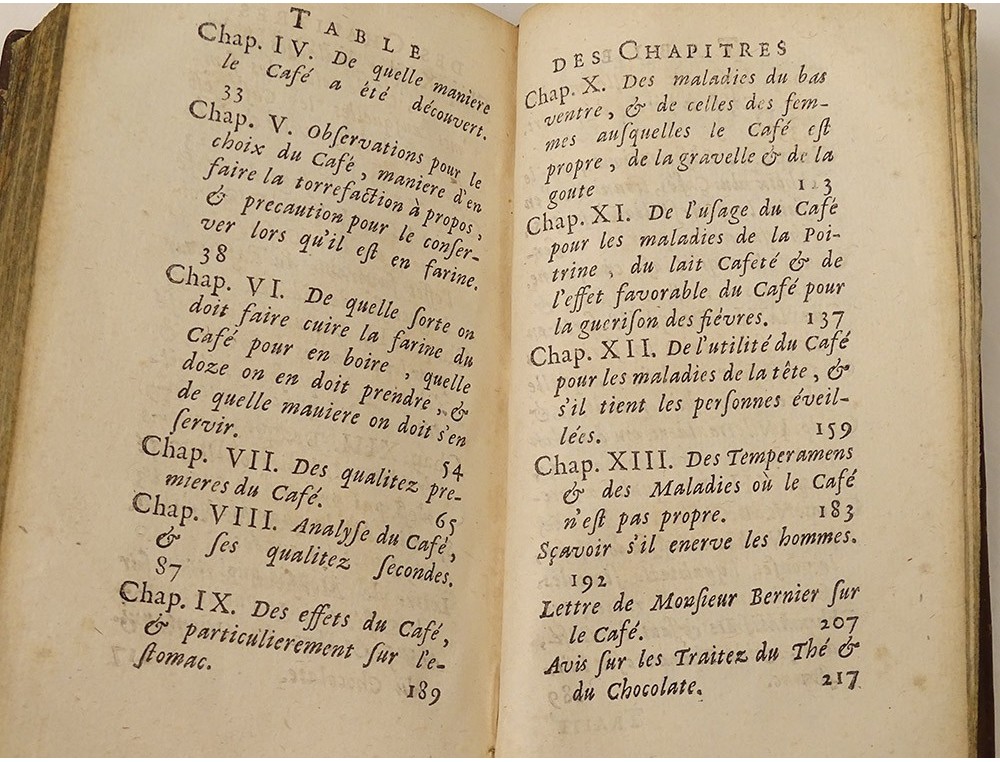 TABLE
Chap. IV. De quelle maniere
le Café a été découvert.
33
Chap. V. Obſervations pour le
choix du Café, maniere d'en
faire la torrefaction à propos,
& precaution pour le conſer-
ver lors qu'il eſt en farine.
38
Chap. VI. De quelle ſorte on
doit faire cuire la farine du
Café pour en boire, quelle
doze on en doit prendre, &
de quelle maniere on doit s'en
ſervir. 54
Chap. VII. Des qualitez pre-
mieres du Café. 65
Chap. VIII. Analyſe du Café,
& ſes qualitez ſecondes.
87
Chap. IX. Des effets du Café,
& particulierement ſur l'e-
ſtomac. 189
DES CHAPITRES
Chap. X. Des maladies du bas
ventre, & de celles des fem-
mes auſquelles le Café eſt
propre, de la gravelle & de la
goute 113
Chap. XI. De l'uſage du Café
pour les maladies de la Poi-
trine, du lait Cafeté & de
l'effet favorable du Café pour
la gueriſon des fiévres. 137
Chap. XII. De l'utilité du Café
pour les maladies de la tête, &
s'il tient les perſonnes éveil-
lées. 159
Chap. XIII. Des Temperamens
& des Maladies où le Café
n'eſt pas propre. 183
Sçavoir s'il enerve les hommes.
192
Lettre de Monſieur Bernier ſur
le Café. 207
Avis ſur les Traitez du Thé &
du Chocolate. 217